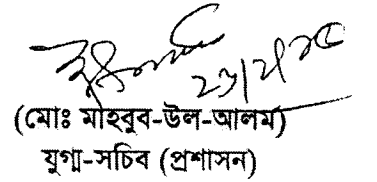 (মোঃ মাহবুব-উল-আলম)
যুগ্ম-সচিব (প্রশাসন)